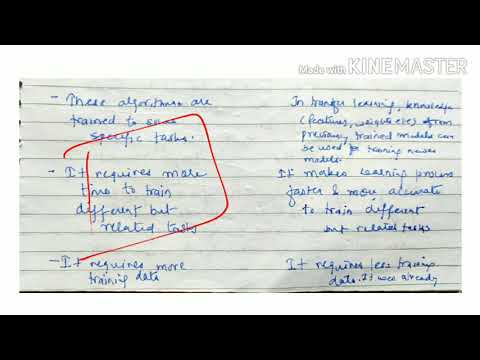 Made with KINEMASTER
- These algorithms are
trained to solve
specific tasks.
- It requires more
time to train
different but
related tasks
- It requires more
training data
In transfer learning, knowledge
(features, weights etc) from
previously trained models can
be used for training newer
models.
It makes learning process
faster & more accurate
to train different
but related tasks
It requires less training
data. It uses already